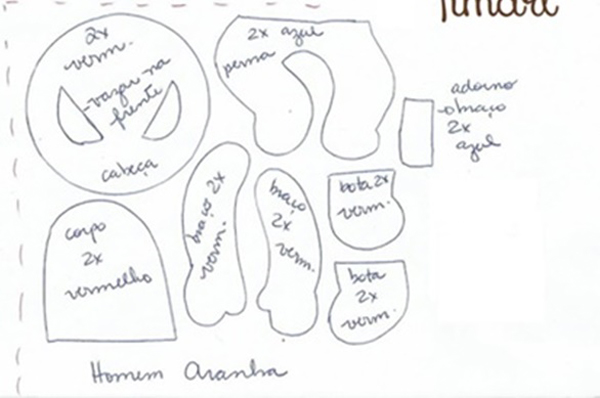 2x
verm.
vazar na
frente
cabeça
2x azul
perna
adorno
braço
2x
azul
corpo
2x
vermelho
braço 2x
verm.
braço
2x
verm.
bota 2x
verm.
bota
2x
verm.
Homem Aranha